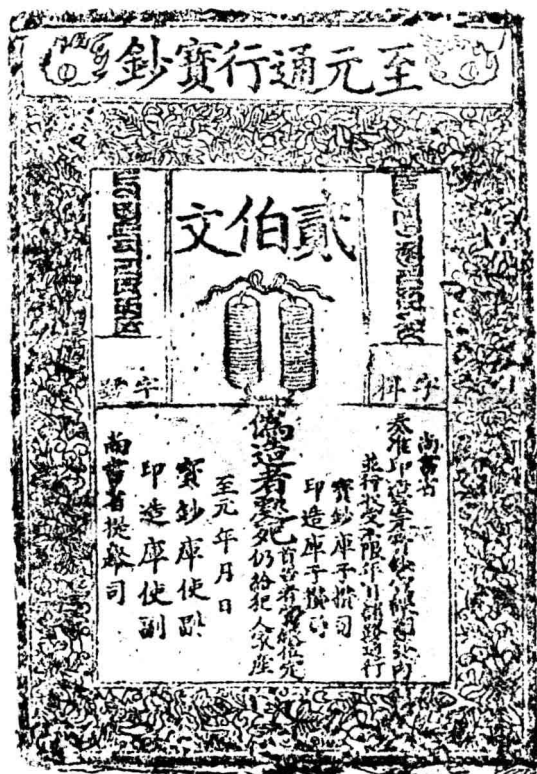 至元通行寳鈔
貳伯文
字料
字號
尚書省
奏准印造至元寳鈔宣課差役內
並行收受不限年月諸路通行
寳鈔庫子攢司
印造庫子攢司
偽造者處死
首告者賞銀伍定
仍給犯人家産
至元 年 月 日
寳鈔庫使副
印造庫使副
尚書省提舉司